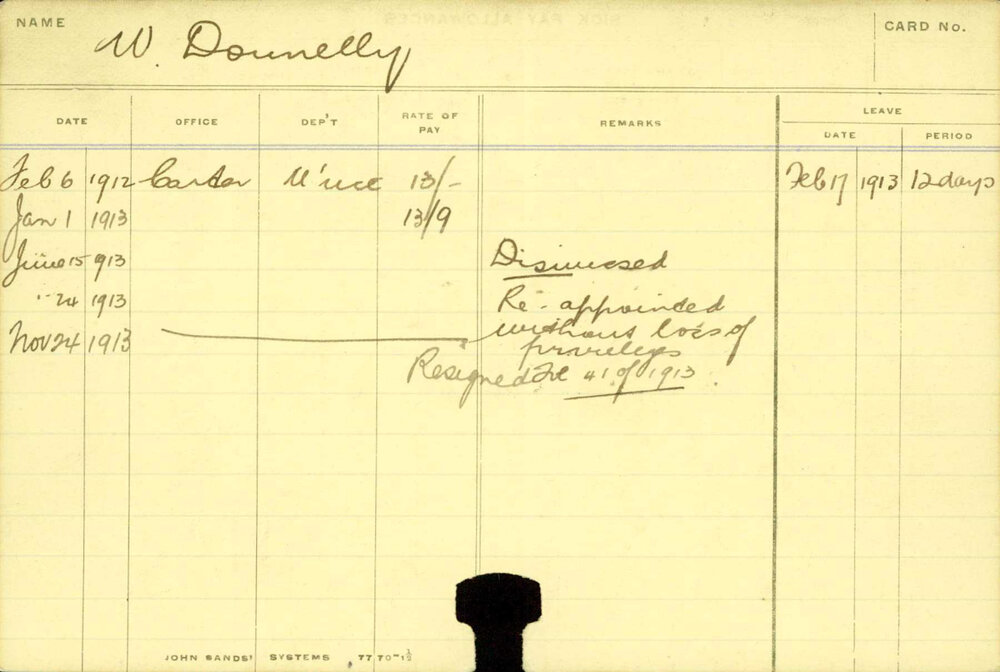 NAME
W. Donnelly
CARD No.
DATE OFFICE DEP'T RATE OF PAY REMARKS LEAVE
DATE PERIOD
Feb 6 1912 Carter 13/- Feb 17 1913 12 days
Jan 1 1913 13/9
June 15 913 Dismissed
" 24 1913 Re-appointed
without loss of
privileges
Nov 24 1913
Resigned 41 of 1913
JOHN SANDS' SYSTEMS 7770-1½